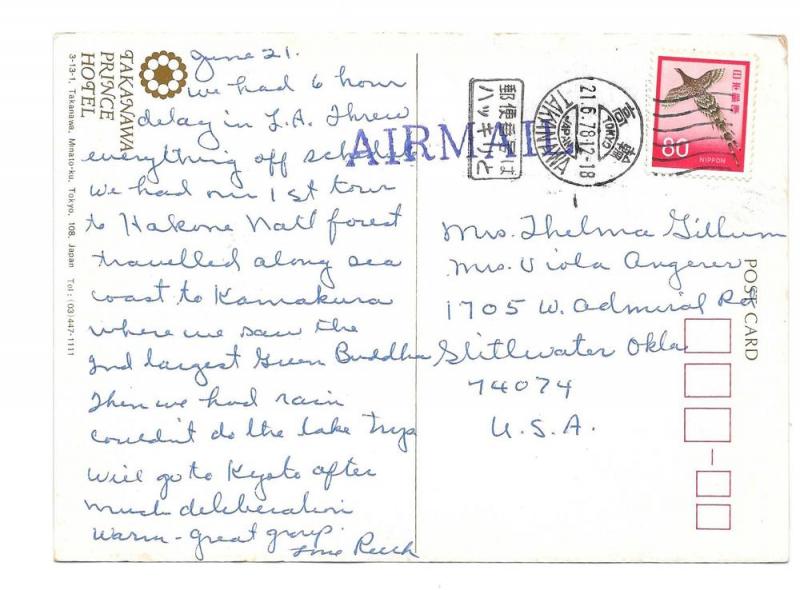 TAKANAWA
PRINCE
HOTEL
3-13-1, Takanawa, Minato-ku, Tokyo, 108, Japan Tel: (03)447-1111
June 21.
We had 6 hour
delay in L.A. Threw
everything off schedule
we had our 1st tour
to Hakone Natl forest
travelled along sea
coast to Kamakura
where we saw the
2nd largest Green Buddha
Then we had rain
couldn't do the lake trip
Will go to Kyoto after
much deliberation
Warm - great group.
AIRMAIL
郵便番号は
ハッキリと
高輪
TOKYO
21.6.78.12-18
JAPAN
TAKANAWA
日本郵便
80
NIPPON
POST CARD
Mrs. Thelma Gillum
Mrs. Viola Angerer
1705 W. Admiral Rd
Stillwater Okla
74074
U.S.A.